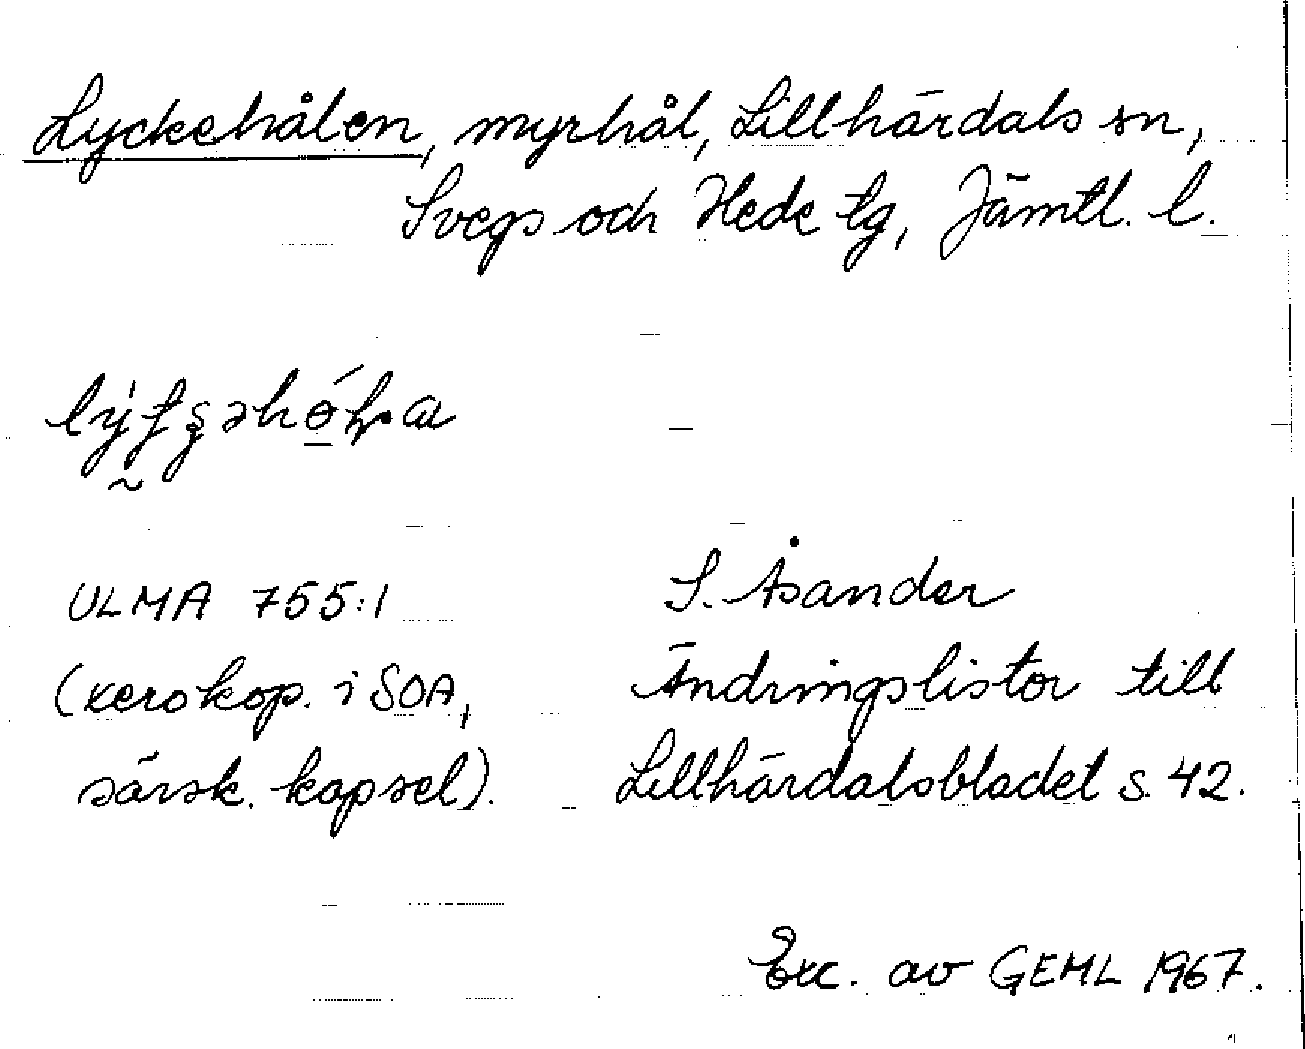 Lyckehålen, myrhål, Lillhärdals sn,
Svegs och Hede tg, Jämtl. l.
ULMA 755:1
(xerokop. i SOA,
särsk. kapsel).
S. Åsander
Ändringslistor till
Lillhärdalsbladet s. 42.
Exc. av GEML 1967.